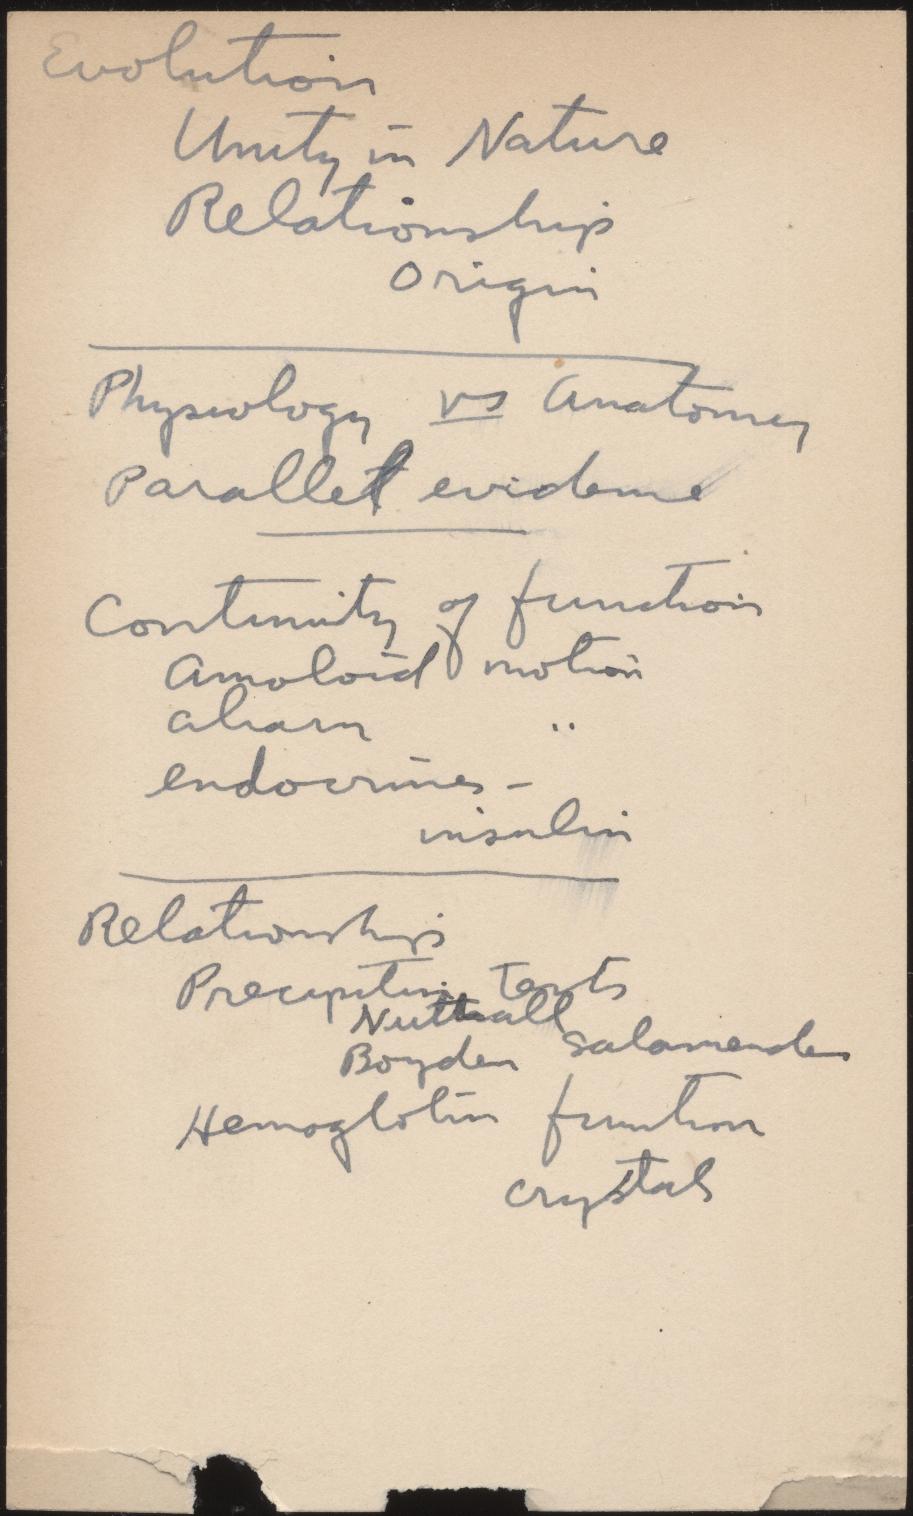 Evolution
Unity in Nature
Relationship
Origin
Physiology vs Anatomy
Parallel evidence
Continuity of function
Amoboid motion
"
endocrines -
insulin
Relationship
Precipitin Tests
Nuttall
Boyden Salamander
Hemoglobin function
crystals